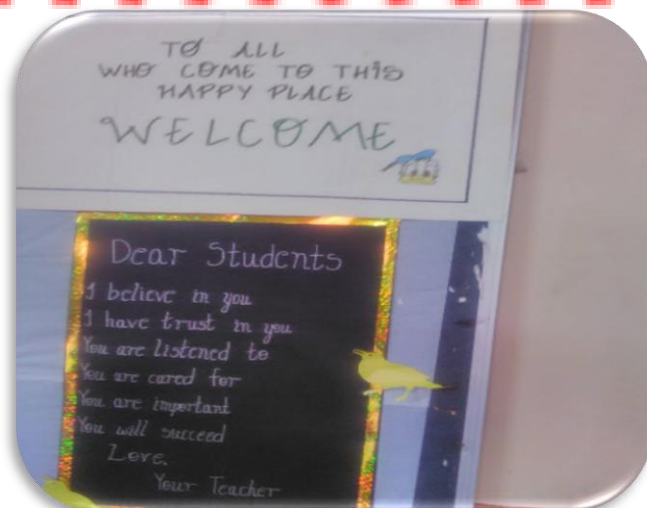 TO ALL
WHO COME TO THIS
HAPPY PLACE
WELCOME
Dear Students
I believe in you
I have trust in you
You are listened to
You are cared for
You are important
You will succeed
Love,
Your Teacher